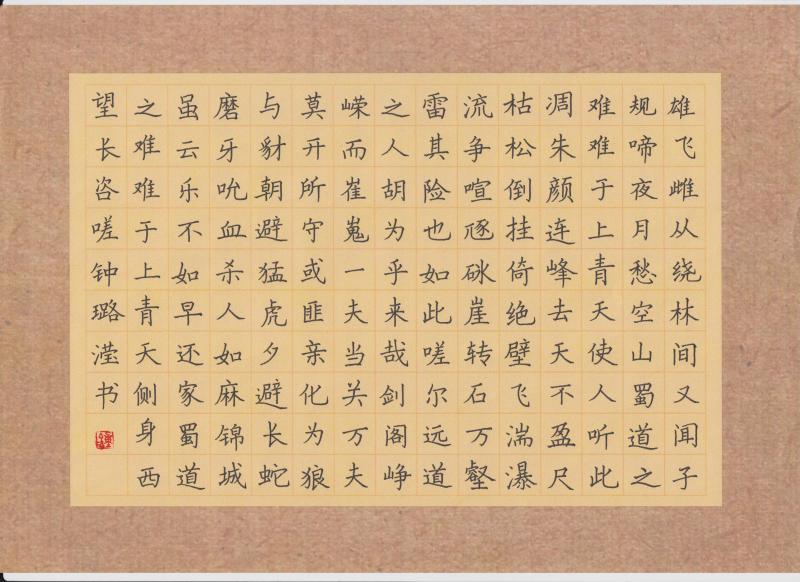 雄飞雌从绕林间又闻子
规啼夜月愁空山蜀道之
难难于上青天使人听此
凋朱颜连峰去天不盈尺
枯松倒挂倚绝壁飞湍瀑
流争喧豗砯崖转石万壑
雷其险也如此嗟尔远道
之人胡为乎来哉剑阁峥
嵘而崔嵬一夫当关万夫
莫开所守或匪亲化为狼
与豺朝避猛虎夕避长蛇
磨牙吮血杀人如麻锦城
虽云乐不如早还家蜀道
之难难于上青天侧身西
望长咨嗟钟璐滢书